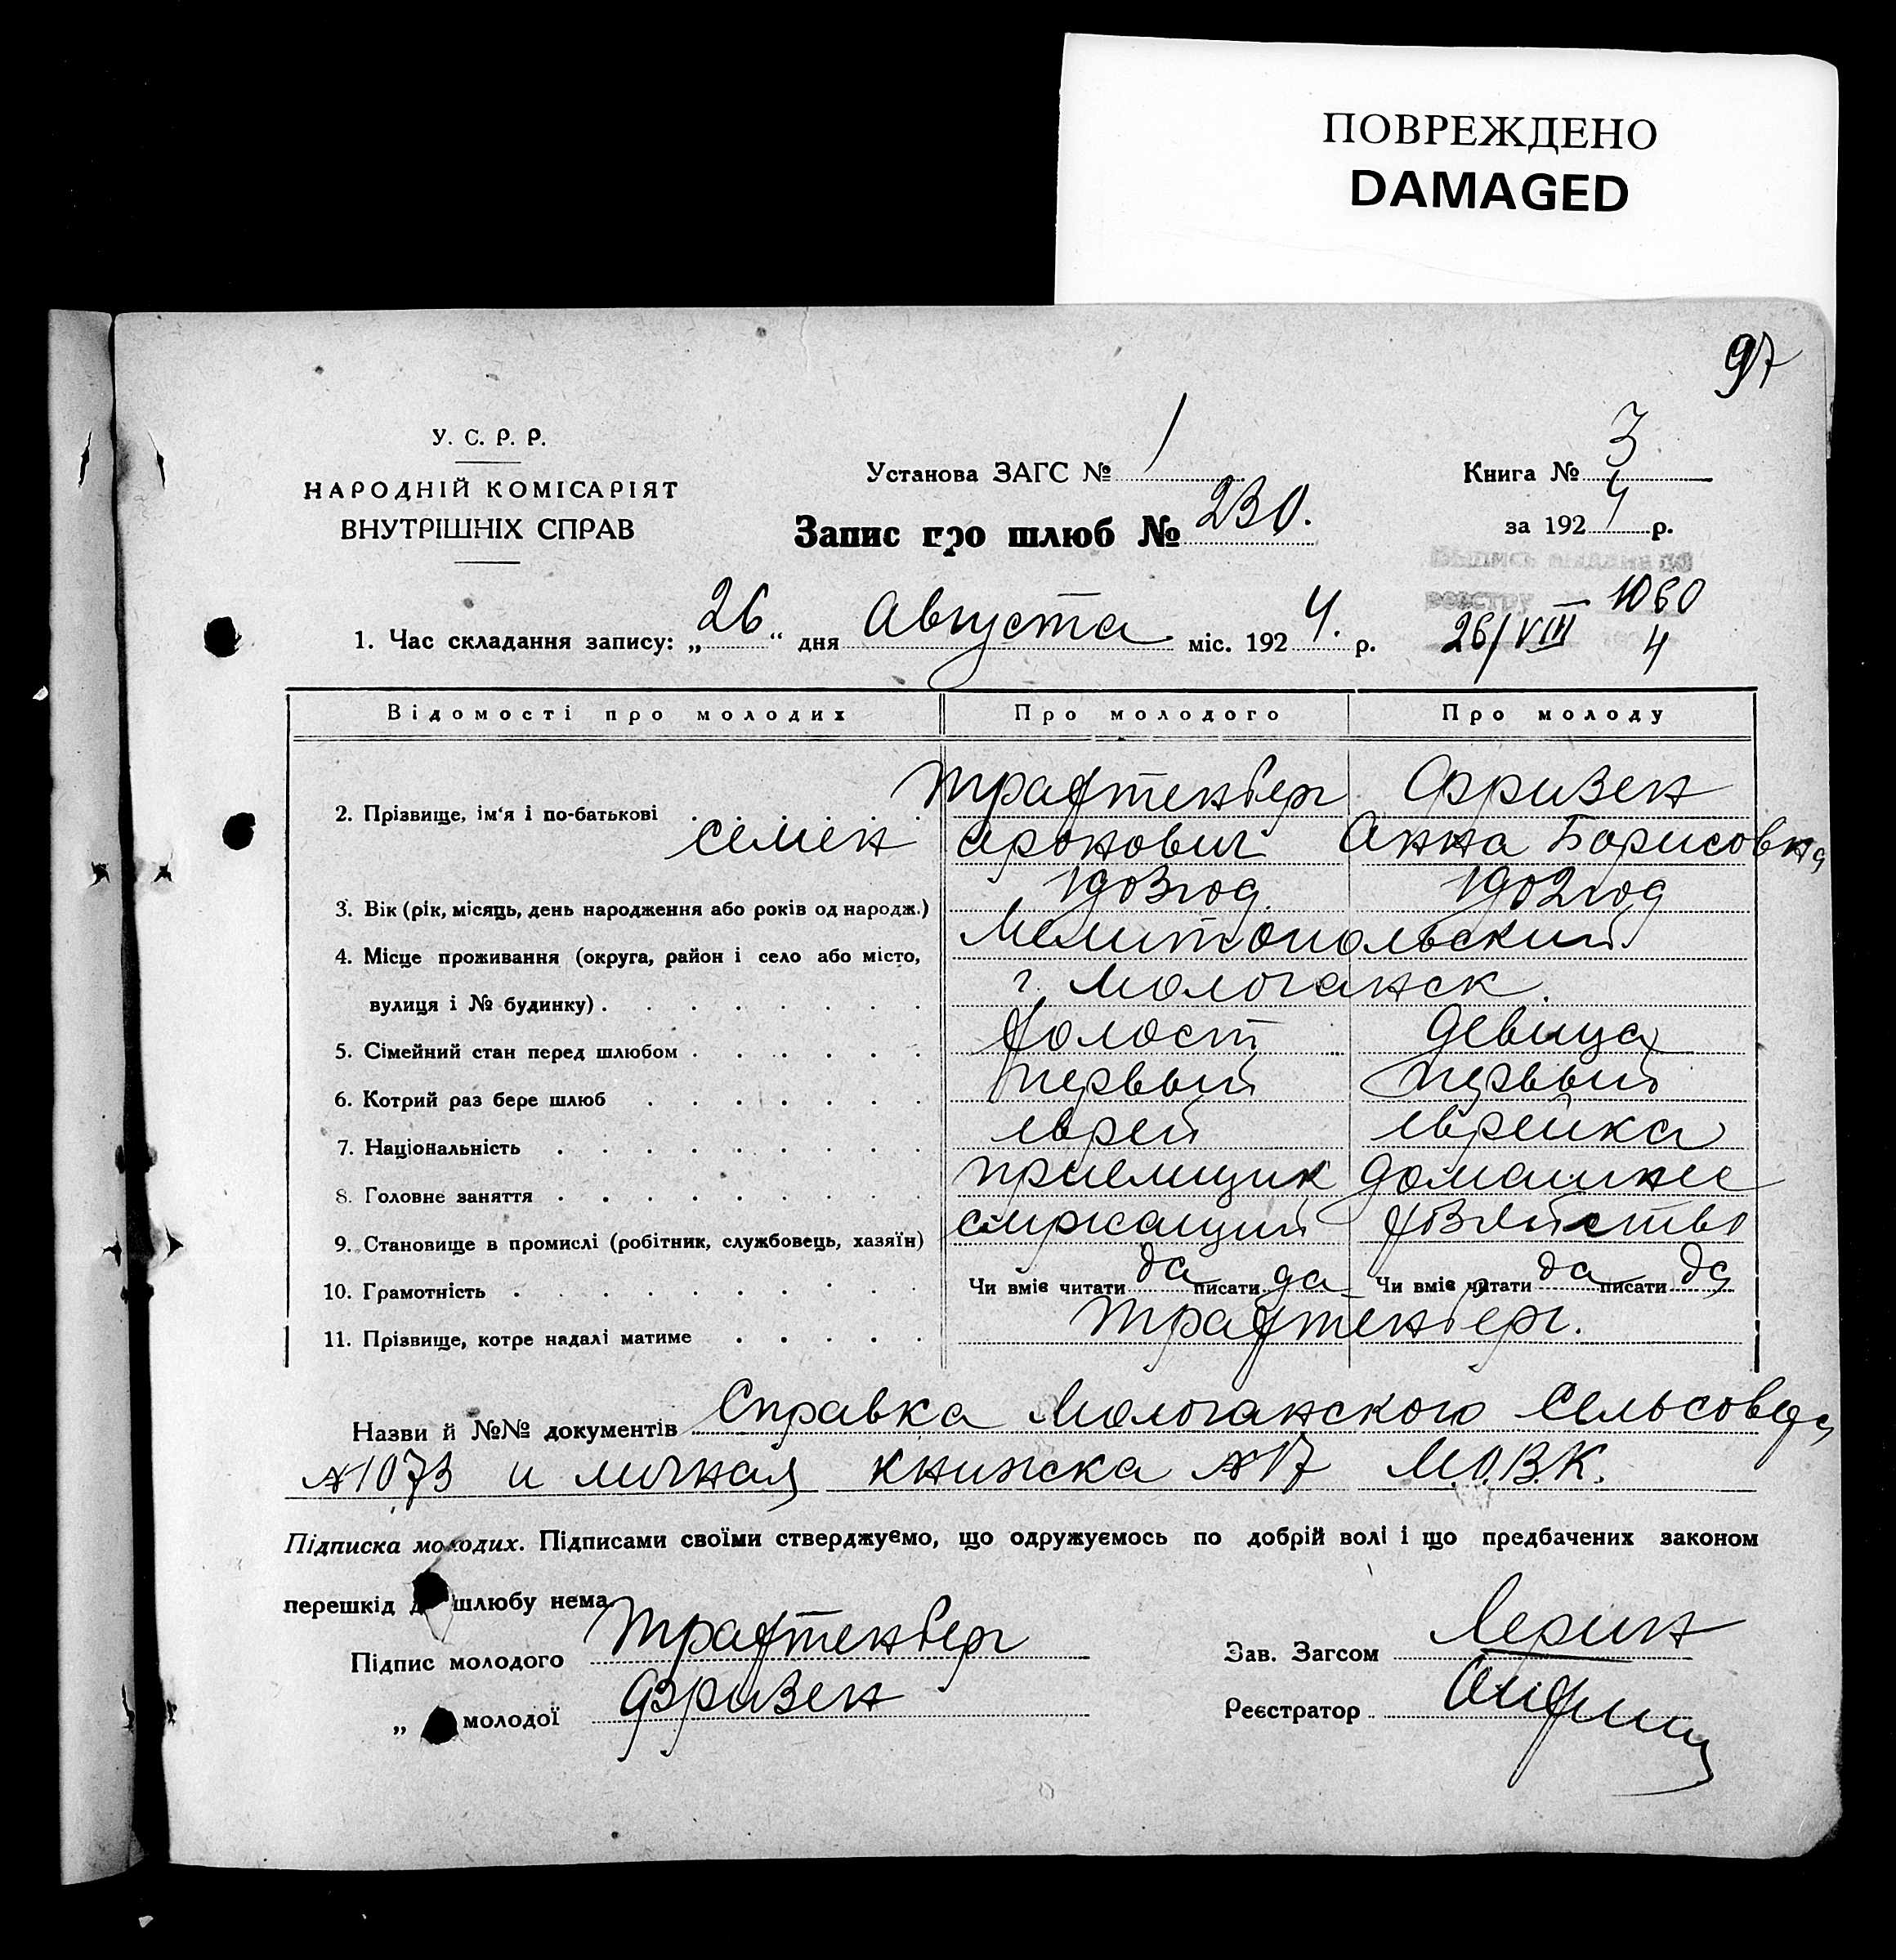 ПОВРЕЖДЕНО
DAMAGED
97
У. С. Р. Р.
НАРОДНІЙ КОМІСАРІЯТ
ВНУТРІШНІХ СПРАВ
Установа ЗАГС № 1
Книга № 3
за 1924 р.
Запис про шлюб № 230.
реєстру 1060
26/VIII 4
1. Час складання запису: „26“ дня Августа міс. 1924. р.
Відомості про молодих Про молодого Про молоду
2. Прізвище, ім‘я і по-батькові Трахтенберг Фризен
Семен Аронович Анна Борисовна
3. Вік (рік, місяць, день народження або років од народж.) 1903 год. 1902 год
4. Місце проживання (округа, район і село або місто, Мелитопольский
вулиця і № будинку) г. Молочанск.
5. Сімейний стан перед шлюбом холост девица
6. Котрий раз бере шлюб первый первый
7. Національність еврей еврейка
8. Головне заняття приемщик домашнее
9. Становище в промислі (робітник, службовець, хазяїн) служащий хозяйство
10. Грамотність Чи вміє читати да писати да Чи вміє читати да писати да
11. Прізвище, котре надалі матиме Трахтенберг.
Назви й №№ документів Справка Молочанского Сельсовета
№ 1073 и личная книжка № 17 М.О.В.К.
Підписка молодих. Підписами своїми стверджуємо, що одружуємось по добрій волі і що предбачених законом
перешкід д шлюбу нема.
Підпис молодого Трахтенберг
„ молодої Фризен
Зав. Загсом
Реєстратор